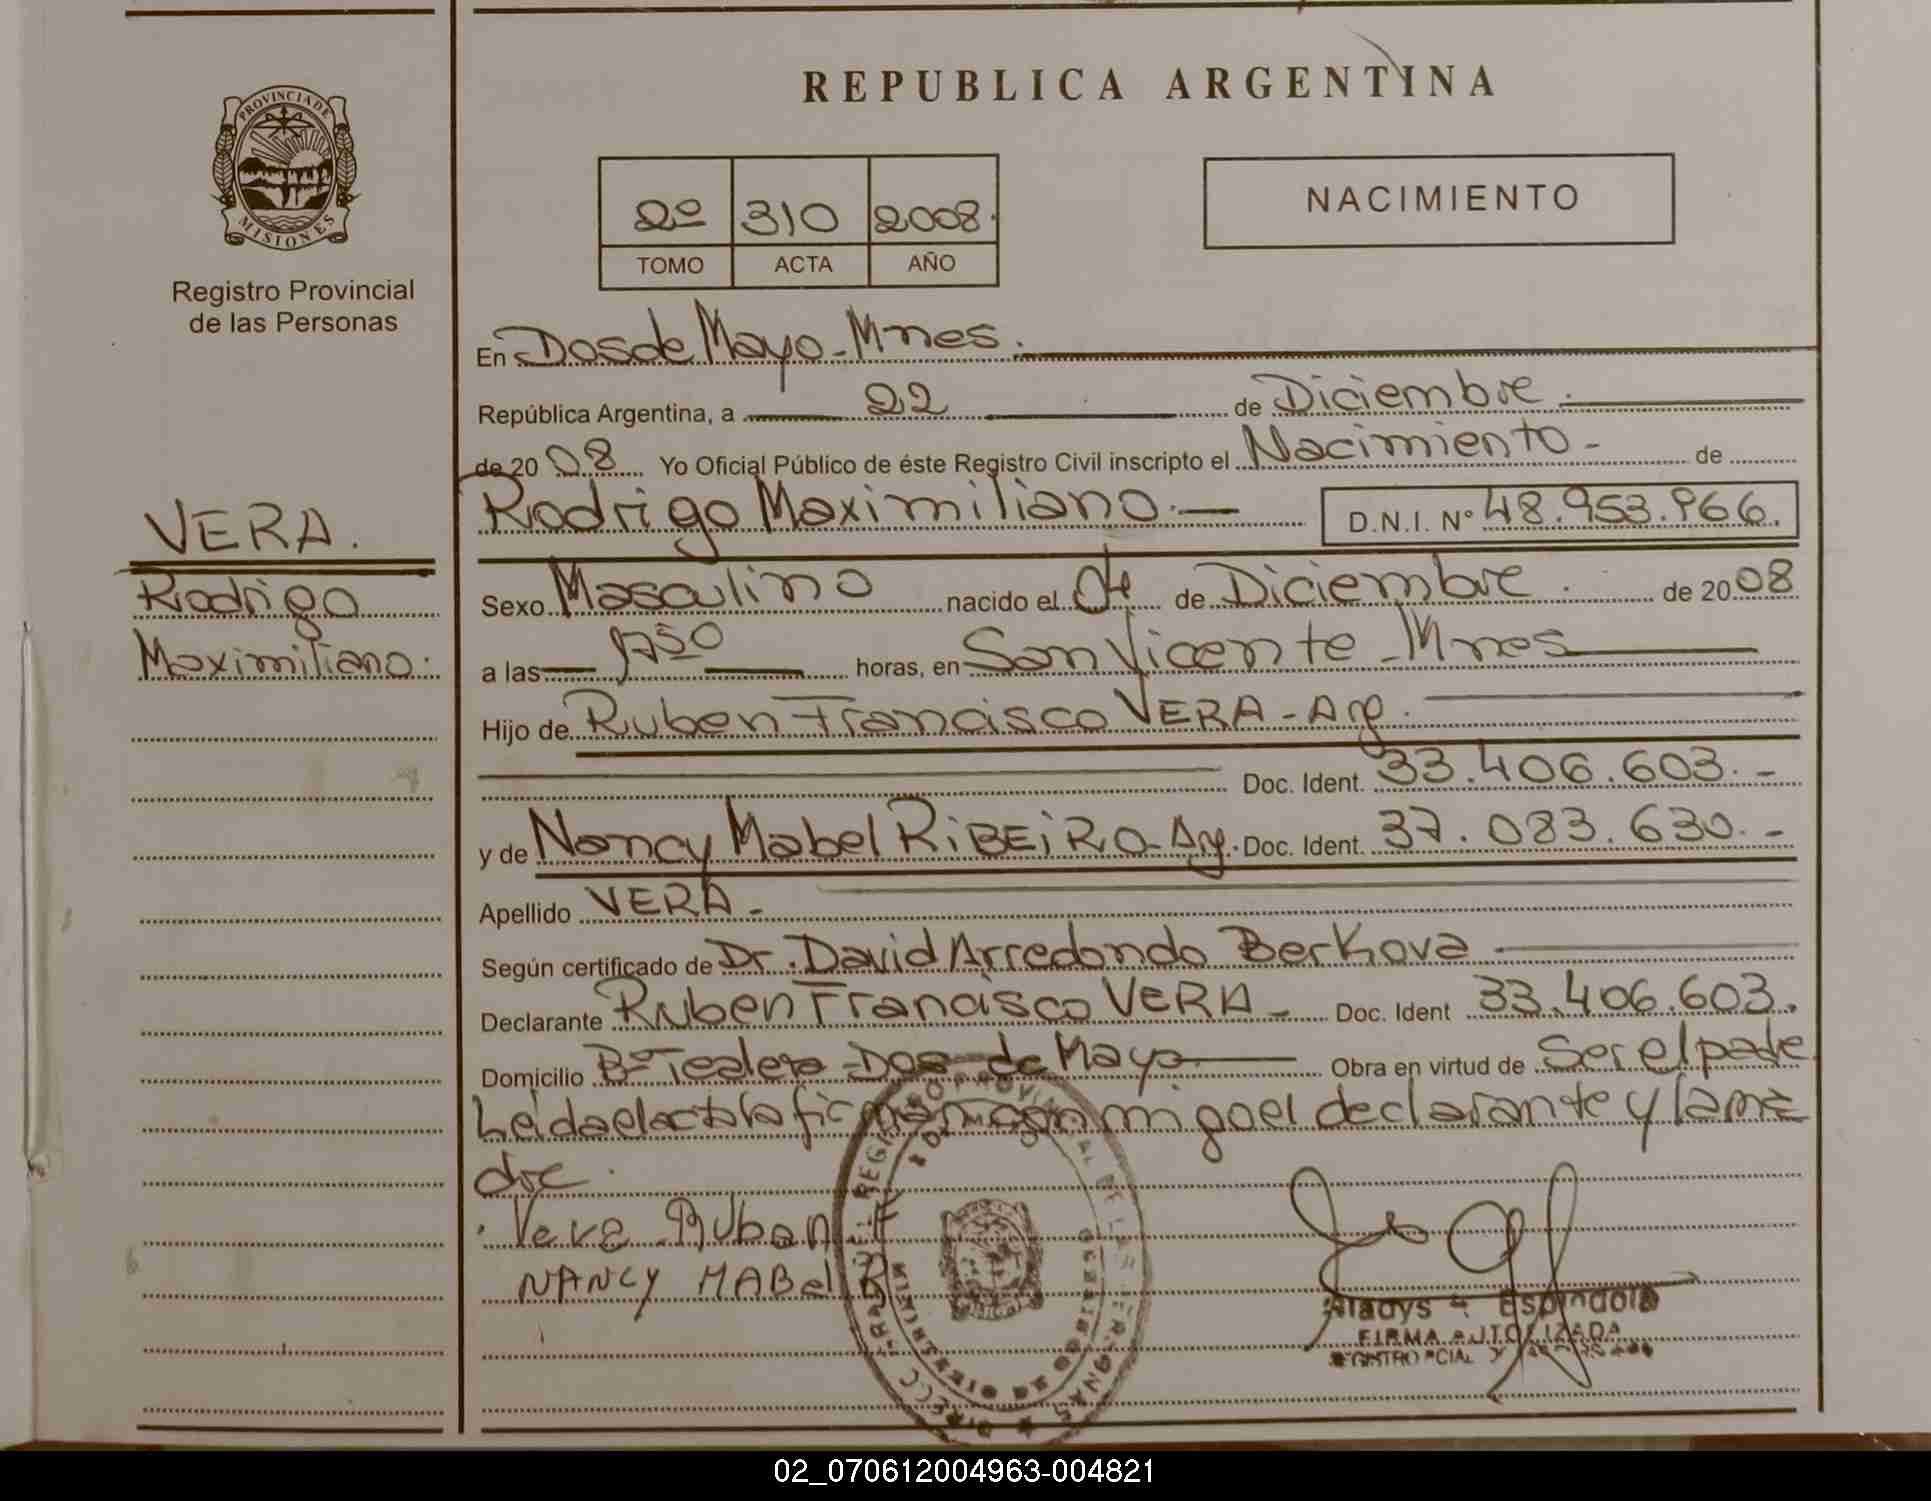 REPUBLICA ARGENTINA
PROVINCIA DE
MISIONES
Registro Provincial
de las Personas
2º 310 2008.
TOMO ACTA AÑO
NACIMIENTO
En Dos de Mayo - Mnes.
República Argentina, a 22 de Diciembre.
de 20 08 Yo Oficial Público de éste Registro Civil inscripto el Nacimiento - de
Rodrigo Maximiliano. — D.N.I. Nº 48.953.966.
VERA.
Rodrigo
Maximiliano.
Sexo Masculino nacido el 04 de Diciembre. de 20 08
a las 1750 horas, en San Vicente - Mnes
Hijo de Ruben Francisco VERA - Arg.
Doc. Ident. 33.406.603. -
y de Nancy Mabel RiBEiRO - Arg. Doc. Ident. 37.083.630. -
Apellido VERA -
Según certificado de Dr. David Arredondo Berkova
Declarante Ruben Francisco VERA - Doc. Ident 33.406.603.
Domicilio Bº Tealera - Dos de Mayo Obra en virtud de Ser el padre
Leida el acta la firman con migo el declarante y la ma
dre.
Vera Ruben F
NANCY MABel R
Espindola
FIRMA AUTORIZADA
02_070612004963-004821